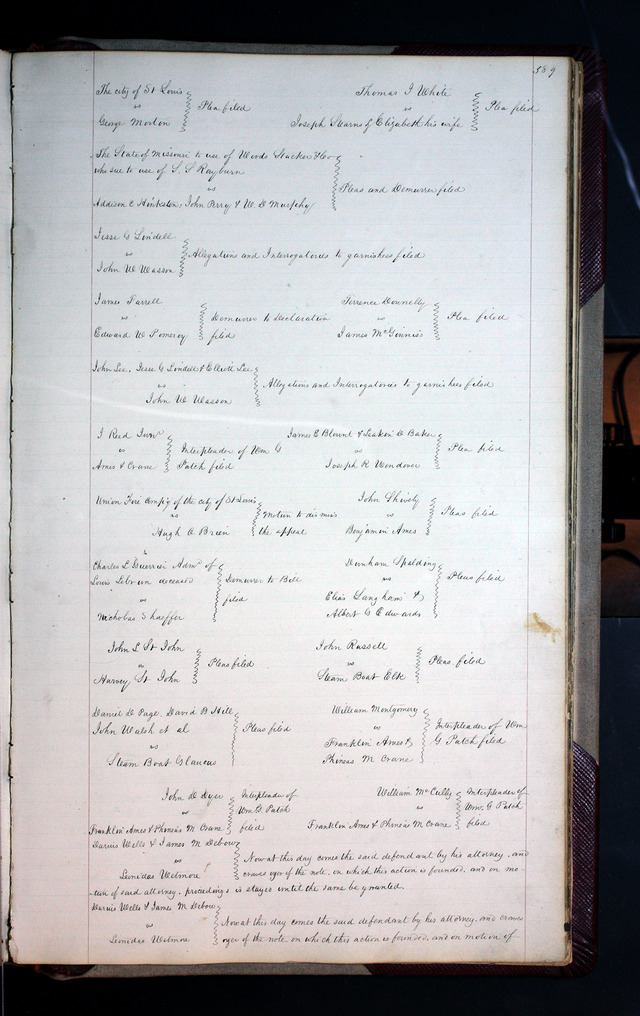 589
The city of St Louis
vs
George Morton
Plea filed
Thomas J White
vs
Joseph Stearns & Elizabeth his wife
Plea filed
The State of Missouri to use of Woods Stacker & Co
who sue to use of S. S Rayburn
vs
Addison C Hinkston, John Perry & W. D Murphy
Pleas and Demurrer filed
Jesse G Lindell
vs
John W Wasson
Allegations and Interrogatories to garnishees filed
James Farrell
vs
Edward W Pomeroy
Demurrer to Declaration
filed
Terrence Donnelly
vs
James McGinniss
Plea filed
John Lee, Jesse G Lindell & Elliott Lee
vs
John W Wasson
Allegations and Interrogatories to garnishees filed
J Reed Junr
vs
Ames & Crane
Interpleader of Wm G
Patch filed
James E Blount & Baker
vs
Joseph R Wendover
Plea filed
Union Fire Compy of the city of St Louis
vs
Hugh O Brien
Motion to dismiss
the appeal
John Shively
vs
Benjamin Ames
Pleas filed
Charles L Guerrin Admr of
Louis Lebrun deceased
vs
Nicholas Shaeffer
Demurrer to Bill
filed
Durnham Spalding
vs
Elias Langham &
Albert G Edwards
Pleas filed
John L St John
vs
Harvey St John
Pleas filed
John Russell
vs
Steam Boat Elk
Pleas filed
Daniel D Page, David B Hill
John Walsh et al
vs
Steam Boat Glaucus
Pleas filed
William Montgomery
vs
Franklin Ames &
Phineas M Crane
Interpleader of Wm
G Patch filed
John D Dyer
vs
Franklin Ames & Phineas M Crane
Interpleader of
Wm G. Patch
filed
William McCully
vs
Franklin Ames & Phineas M Crane
Interpleader of
Wm. G Patch
filed
Darius Wells & James M Debow
vs
Leonidas Wetmore
Now at this day comes the said defendant by his attorney, and
craves oyer of the note, on which this action is founded, and on mo
tion of said attorney, proceedings is stayed until the same be granted.
Darius Wells & James M Debow
vs
Leonidas Wetmore
Now at this day comes the said defendant by his attorney, and craves
oyer of the note on which this action is founded, and on motion of